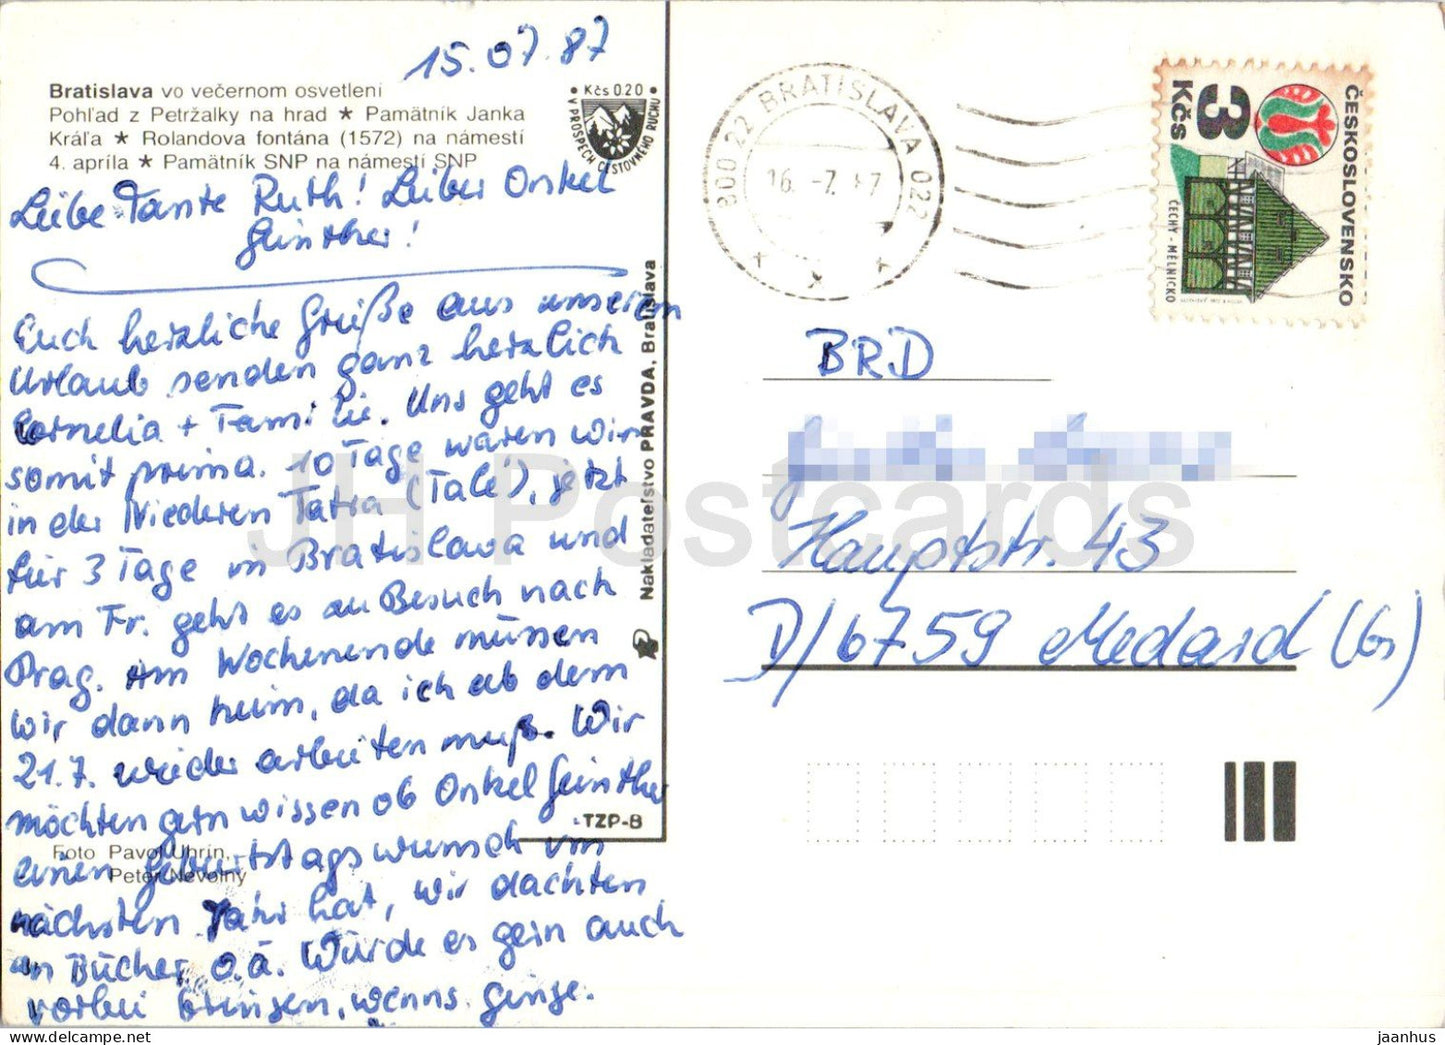 15.07.87
Bratislava vo večernom osvetlení
Pohľad z Petržalky na hrad ★ Pamätník Janka
Kráľa ★ Rolandova fontána (1572) na námestí
4. apríla ★ Pamätník SNP na námestí SNP
Kčs 0,20
V PROSPECH CESTOVNÉHO RUCHU
Liebe Tante Ruth! Lieber Onkel
Günther!
Euch herzliche Grüße aus unserem
Urlaub senden ganz herzlich
Cornelia + Familie. Uns geht es
somit prima. 10 Tage waren wir
in der Niederen Tatra (Tále), jetzt
für 3 Tage in Bratislava und
am Fr. geht es zu Besuch nach
Prag. Am Wochenende müssen
wir dann heim, da ich ab dem
21.7. wieder arbeiten muß. Wir
möchten gern wissen ob Onkel Günther
einen Geburtstagswunsch im
nächsten Jahr hat, wir dachten
an Bücher o.ä. Würde es gern auch
vorbei bringen, wenns ginge.
Foto Pavol Uhrin,
Peter Nevolný
Nakladateľstvo PRAVDA, Bratislava
TZP-B
800 22 BRATISLAVA 022
16.-7. 87
ČESKOSLOVENSKO
3 Kčs
ČECHY - MĚLNICKO
BRD
Hauptstr. 43
D/6759 Medard (Gs)
JH Postcards
jaanhus